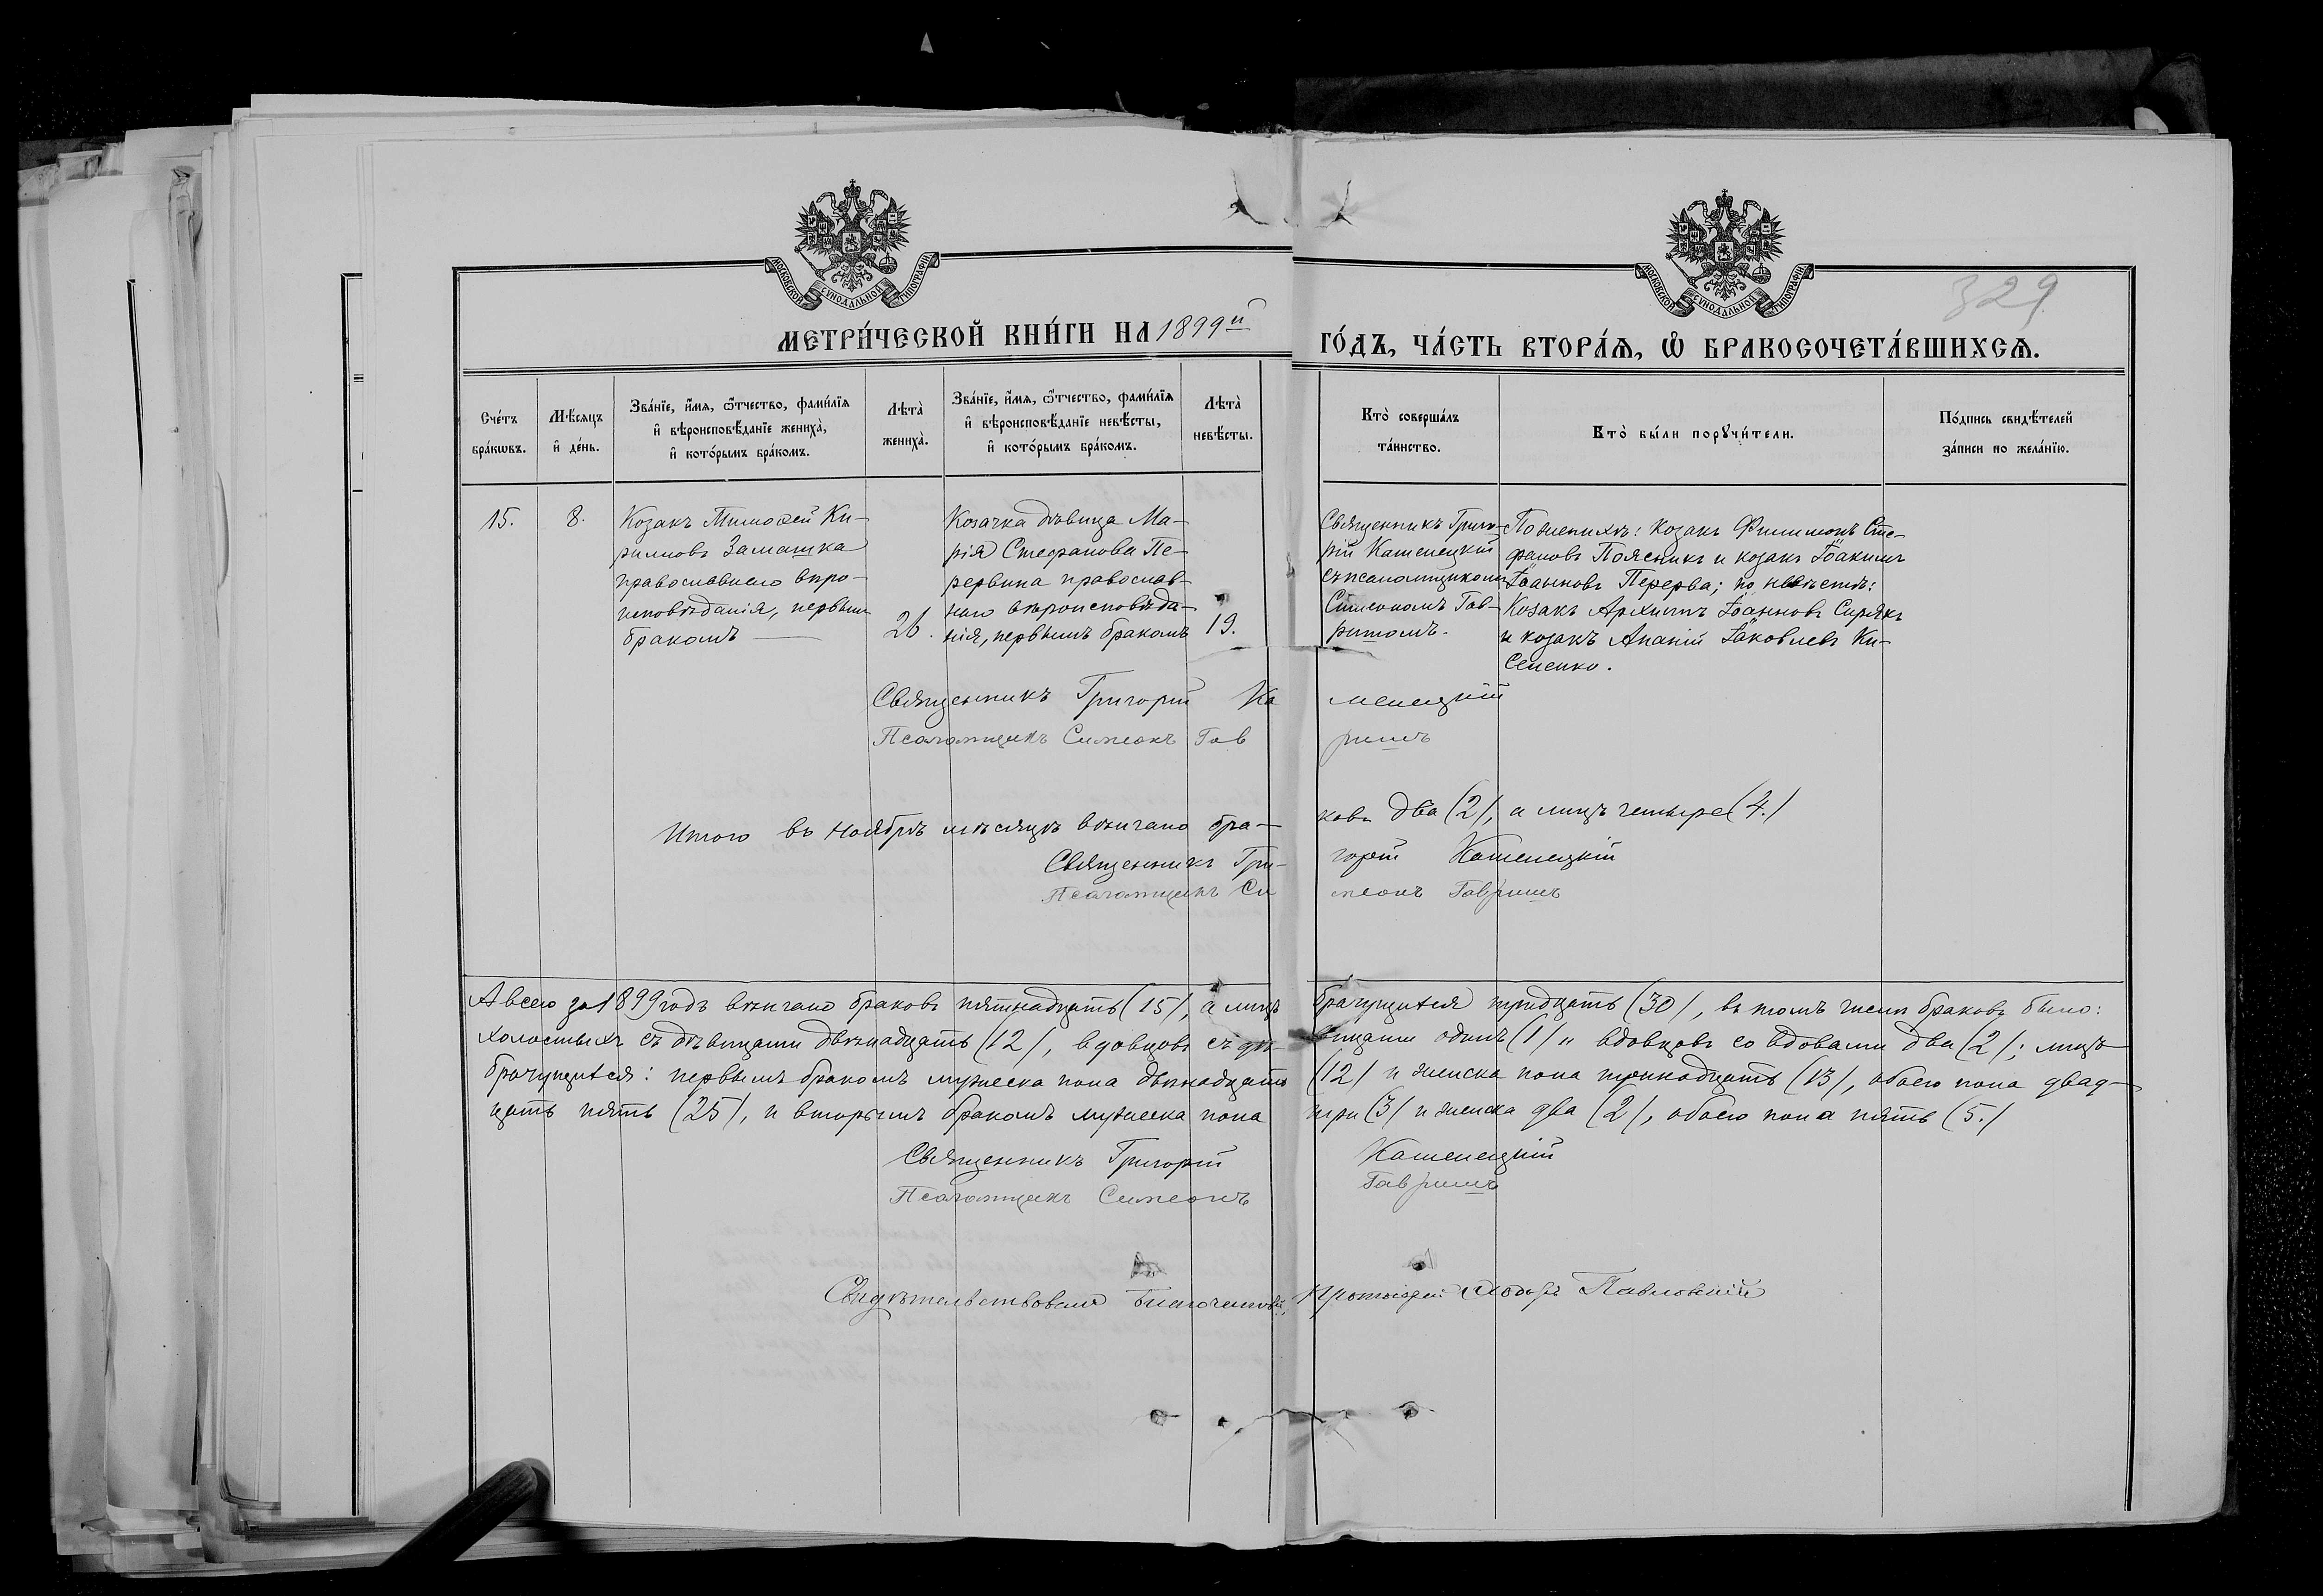 МОСКОВСКОЙ СУНОДАЛЬНОЙ ТИПОГРАФІИ
МОСКОВСКОЙ СУНОДАЛЬНОЙ ТИПОГРАФІИ
329
МЕТРИ́ЧЕСКОЙ КНИ́ГИ НА 1899й
ГО́ДЪ, ЧА́СТЬ ВТОРА́Ѧ, Ѽ БРАКОСОЧЕТА́ВШИХСѦ.
Сче́тъ бра́кѡвъ.
Мѣ́сяцъ и҆ де́нь.
Зва́нїе, и҆́мѧ, ѻ҆́тчество, фами́лїѧ
и҆ вѣроисповѣ́данїе жениха̀,
и҆ кото́рымъ бра́комъ.
Лѣта̀ жениха̀.
Зва́нїе, и҆́мѧ, ѻ҆́тчество, фами́лїѧ
и҆ вѣроисповѣ́данїе невѣ́сты,
и҆ кото́рымъ бра́комъ.
Лѣта̀ невѣ́сты.
Кто̀ соверша́лъ
та́инство.
Кто̀ бы́ли порꙋчи́тели.
По́дпись свидѣ́телей
за́писи по жела́нїю.
15.
8.
Козакъ Тимоѳей Ки-
риловъ Замашка
православнаго вѣро-
исповѣданія, первымъ
бракомъ
26.
Козачка дѣвица Ма-
рія Стефанова Пе-
рервина православ-
наго вѣроисповѣда-
нія, первымъ бракомъ
19.
Священникъ Григо-
рій Каменецкій
съ псаломщикомъ
Симеономъ Гав-
ришомъ.
По женихѣ: козакъ Филимонъ Сте-
фановъ Поясникъ и козакъ Іоакимъ
Іоанновъ Перерва; по невѣстѣ:
Козакъ Архипъ Іоанновъ Сирякъ
и козакъ Ананій Іаковлевъ Ки-
селенко.
Священникъ Григорій Ка менецкій
Псаломщикъ Симеонъ Гав ришъ
Итого въ Ноябрѣ мѣсяцѣ вѣнчано бра- ковъ два (2), а лицъ четыре (4.)
Священникъ Гри- горій Каменецкій
Псаломщикъ Си меонъ Гавришъ
А всего за 1899 годъ вѣнчано браковъ пятнадцать (15), а лицъ брачущихся тридцать (30), въ томъ числѣ браковъ было:
холостыхъ съ дѣвицами двѣнадцать (12), вдовцовъ съ дѣ- вицами одинъ (1) и вдовцовъ со вдовами два (2); лицъ
брачущихся: первымъ бракомъ мужеска пола двѣнадцать (12) и женска пола тринадцать (13), обоего пола двад-
цать пять (25), и вторымъ бракомъ мужеска пола три (3) и женска два (2), обоего пола пять (5.)
Священникъ Григорій Каменецкій
Псаломщикъ Симеонъ Гавришъ
Свидѣтельствовалъ Благочинный, Протоіерей Павловскій